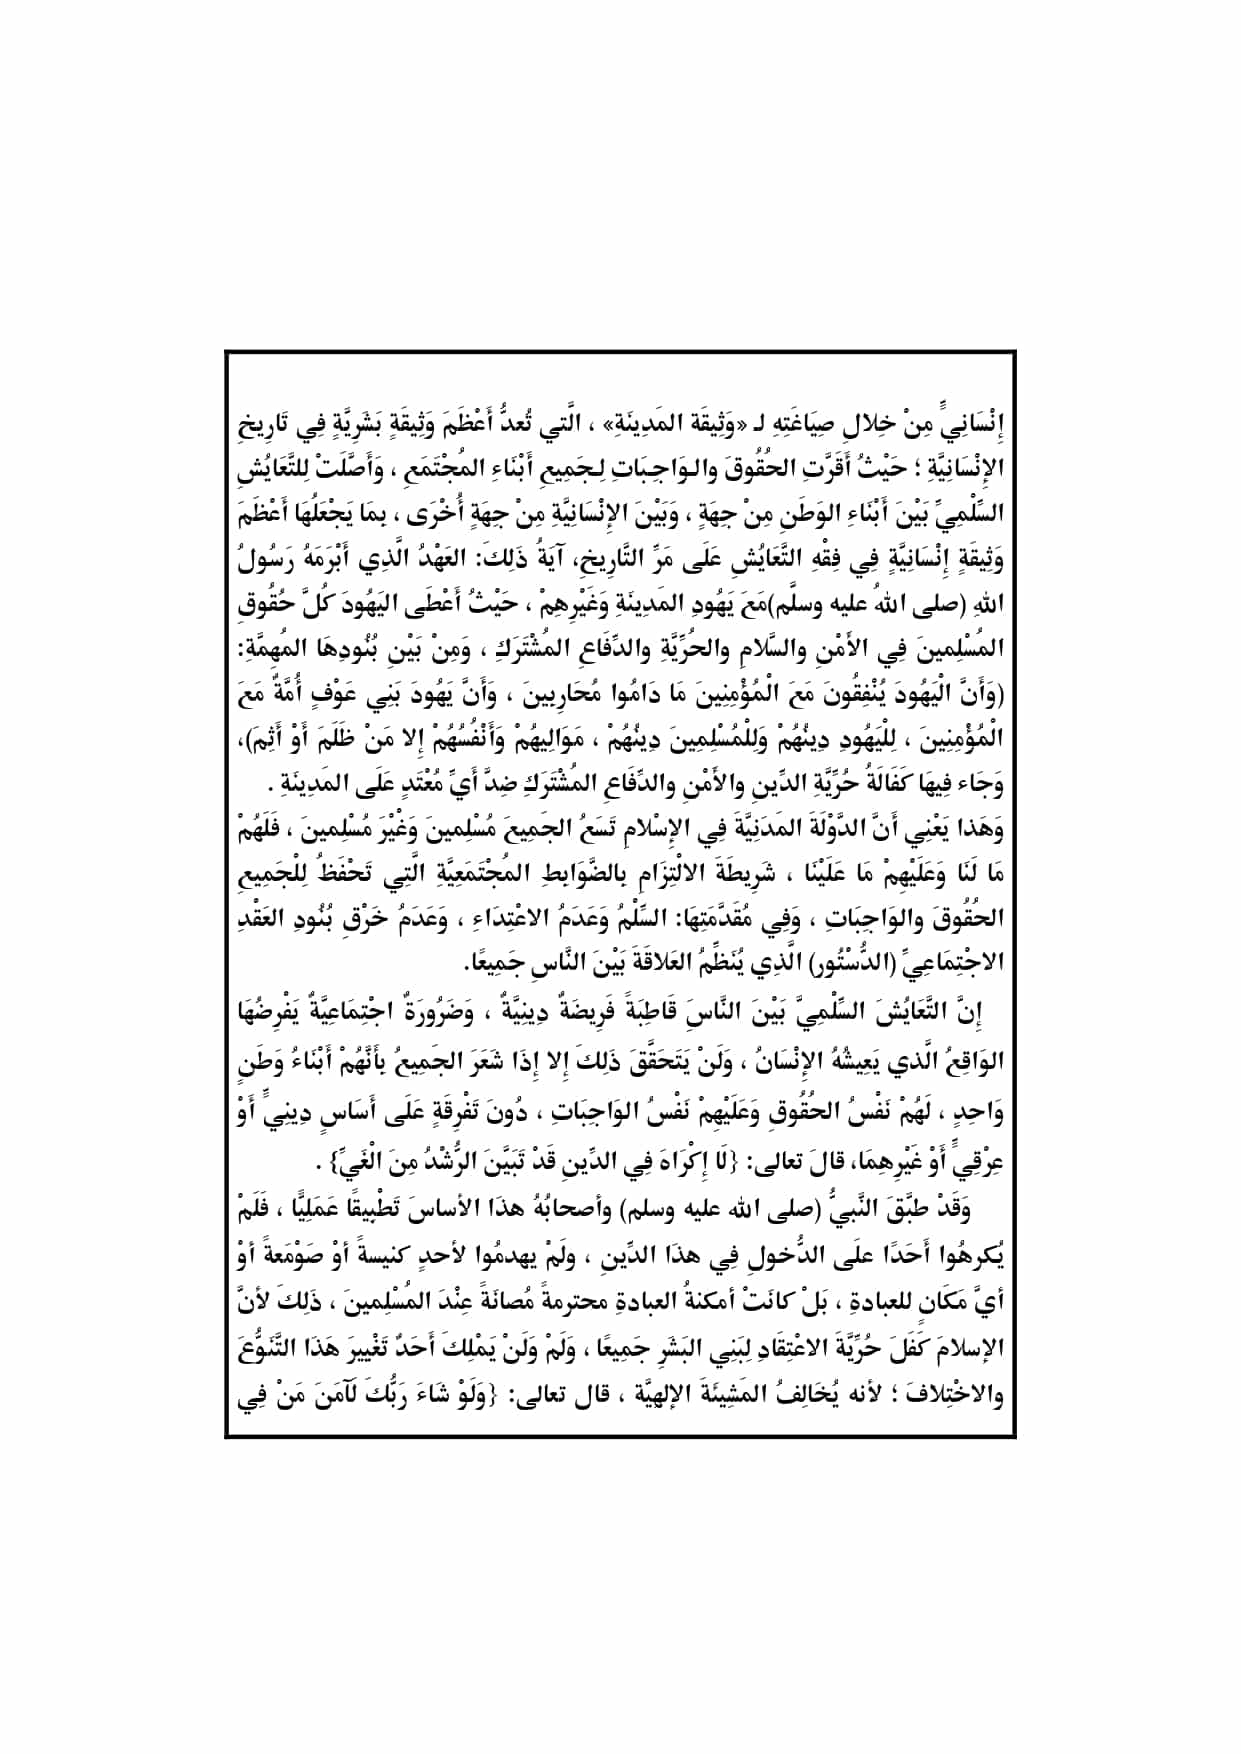 إِنْسَانِيٍّ مِنْ خِلالِ صِيَاغَتِهِ لـ «وَثِيقَة المَدِينَةِ» ، الَّتي تُعدُّ أَعْظَمَ وَثِيقَةٍ بَشَرِيَّةٍ فِي تَارِيخِ
الإِنْسَانِيَّةِ ؛ حَيْثُ أَقَرَّتِ الحُقُوقَ والـوَاجِـبَاتِ لِـجَمِيعِ أَبْنَاءِ المُجْتَمَعِ ، وَأَصَّلَتْ لِلتَّعَايُشِ
السِّلْمِيِّ بَيْنَ أَبْنَاءِ الوَطَنِ مِنْ جِهَةٍ ، وَبَيْنَ الإِنْسَانِيَّةِ مِنْ جِهَةٍ أُخْرَى ، بِمَا يَجْعَلُهَا أَعْظَمَ
وَثِيقَةٍ إِنْسَانِيَّةٍ فِي فِقْهِ التَّعَايُشِ عَلَى مَرِّ التَّارِيخِ، آيَةُ ذَلِكَ: العَهْدُ الَّذِي أَبْرَمَهُ رَسُولُ
اللهِ (صلى اللهُ عليه وسلَّم)مَعَ يَهُودِ المَدِينَةِ وَغَيْرِهِمْ ، حَيْثُ أَعْطَى اليَهُودَ كُلَّ حُقُوقِ
المُسْلِمينَ فِي الأَمْنِ والسَّلامِ والحُرِّيَّةِ والدِّفَاعِ المُشْتَرَكِ ، وَمِنْ بَيْنِ بُنُودِهَا المُهِمَّةِ:
(وَأَنَّ الْيَهُودَ يُنْفِقُونَ مَعَ الْمُؤْمِنِينَ مَا دَامُوا مُحَارِبِينَ ، وَأَنَّ يَهُودَ بَنِي عَوْفٍ أُمَّةٌ مَعَ
الْمُؤْمِنِينَ ، لِلْيَهُودِ دِينُهُمْ وَلِلْمُسْلِمِينَ دِينُهُمْ ، مَوَالِيهُمْ وَأَنْفُسُهُمْ إِلا مَنْ ظَلَمَ أَوْ أَثِمَ)،
وَجَاء فِيهَا كَفَالَةُ حُرِّيَّةِ الدِّينِ والأَمْنِ والدِّفَاعِ المُشْتَرَكِ ضِدَّ أَيِّ مُعْتَدٍ عَلَى المَدِينَةِ .
وَهَذا يَعْنِي أَنَّ الدَّوْلَةَ المَدَنِيَّةَ فِي الإِسْلامِ تَسَعُ الجَمِيعَ مُسْلِمينَ وَغْيْرَ مُسْلِمينَ ، فَلَهُمْ
مَا لَنَا وَعَلَيْهِمْ مَا عَلَيْنَا ، شَرِيطَةَ الالْتِزَامِ بِالضَّوَابِطِ المُجْتَمَعِيَّةِ الَّتِي تَحْفَظُ لِلْجَمِيعِ
الحُقُوقَ والوَاجِبَاتِ ، وَفِي مُقَدَّمَتِهَا: السِّلْمُ وَعَدَمُ الاعْتِدَاءِ ، وَعَدَمُ خَرْقِ بُنُودِ العَقْدِ
الاجْتِمَاعِيِّ (الدُّسْتُور) الَّذِي يُنَظِّمُ العَلاقَةَ بَيْنَ النَّاسِ جَمِيعًا.
إِنَّ التَّعَايُشَ السِّلْمِيَّ بَيْنَ النَّاسَ قَاطِبَةً فَرِيضَةٌ دِينِيَّةٌ ، وَضَرُورَةٌ اجْتِمَاعِيَّةٌ يَفْرِضُهَا
الوَاقِعُ الَّذي يَعِيشُهُ الإِنْسَانُ ، وَلَنْ يَتَحَقَّقَ ذَلِكَ إِلا إِذَا شَعَرَ الجَمِيعُ بِأَنَّهُمْ أَبْنَاءُ وَطَنٍ
وَاحِدٍ ، لَهُمْ نَفْسُ الحُقُوقِ وَعَلَيْهِمْ نَفْسُ الوَاجِبَاتِ ، دُونَ تَفْرِقَةٍ عَلَى أَسَاسٍ دِينِيٍّ أَوْ
عِرْقِيٍّ أَوْ غَيْرِهِمَا، قالَ تعالى: {لَا إِكْرَاهَ فِي الدِّينِ قَدْ تَبَيَّنَ الرُّشْدُ مِنَ الْغَيِّ} .
وَقَدْ طبَّقَ النَّبيُّ (صلى الله عليه وسلم) وأصحابُهُ هذَا الأساسَ تَطْبِيقًا عَمَلِيًّا ، فَلَمْ
يُكرهُوا أَحَدًا علَى الدُّخولِ فِي هذَا الدِّينِ ، ولَمْ يهدمُوا لأحدٍ كنيسةً أوْ صَوْمَعةً أوْ
أيَّ مَكَانٍ للعبادةِ ، بَلْ كانَتْ أمكنةُ العبادةِ محترمةً مُصانَةً عِنْدَ المُسْلِمينَ ، ذَلِكَ لأنَّ
الإسلامَ كَفَلَ حُرِّيَّةَ الاعْتِقَادِ لِبَنِي البَشَرِ جَمِيعًا ، وَلَمْ وَلَنْ يَمْلِكَ أَحَدٌ تَغْيِيرَ هَذَا التَّنَوُّعَ
والاخْتِلافَ ؛ لأنه يُخَالِفُ المَشِيئَةَ الإلهِيَّة ، قال تعالى: {وَلَوْ شَاءَ رَبُّكَ لَآمَنَ مَنْ فِي